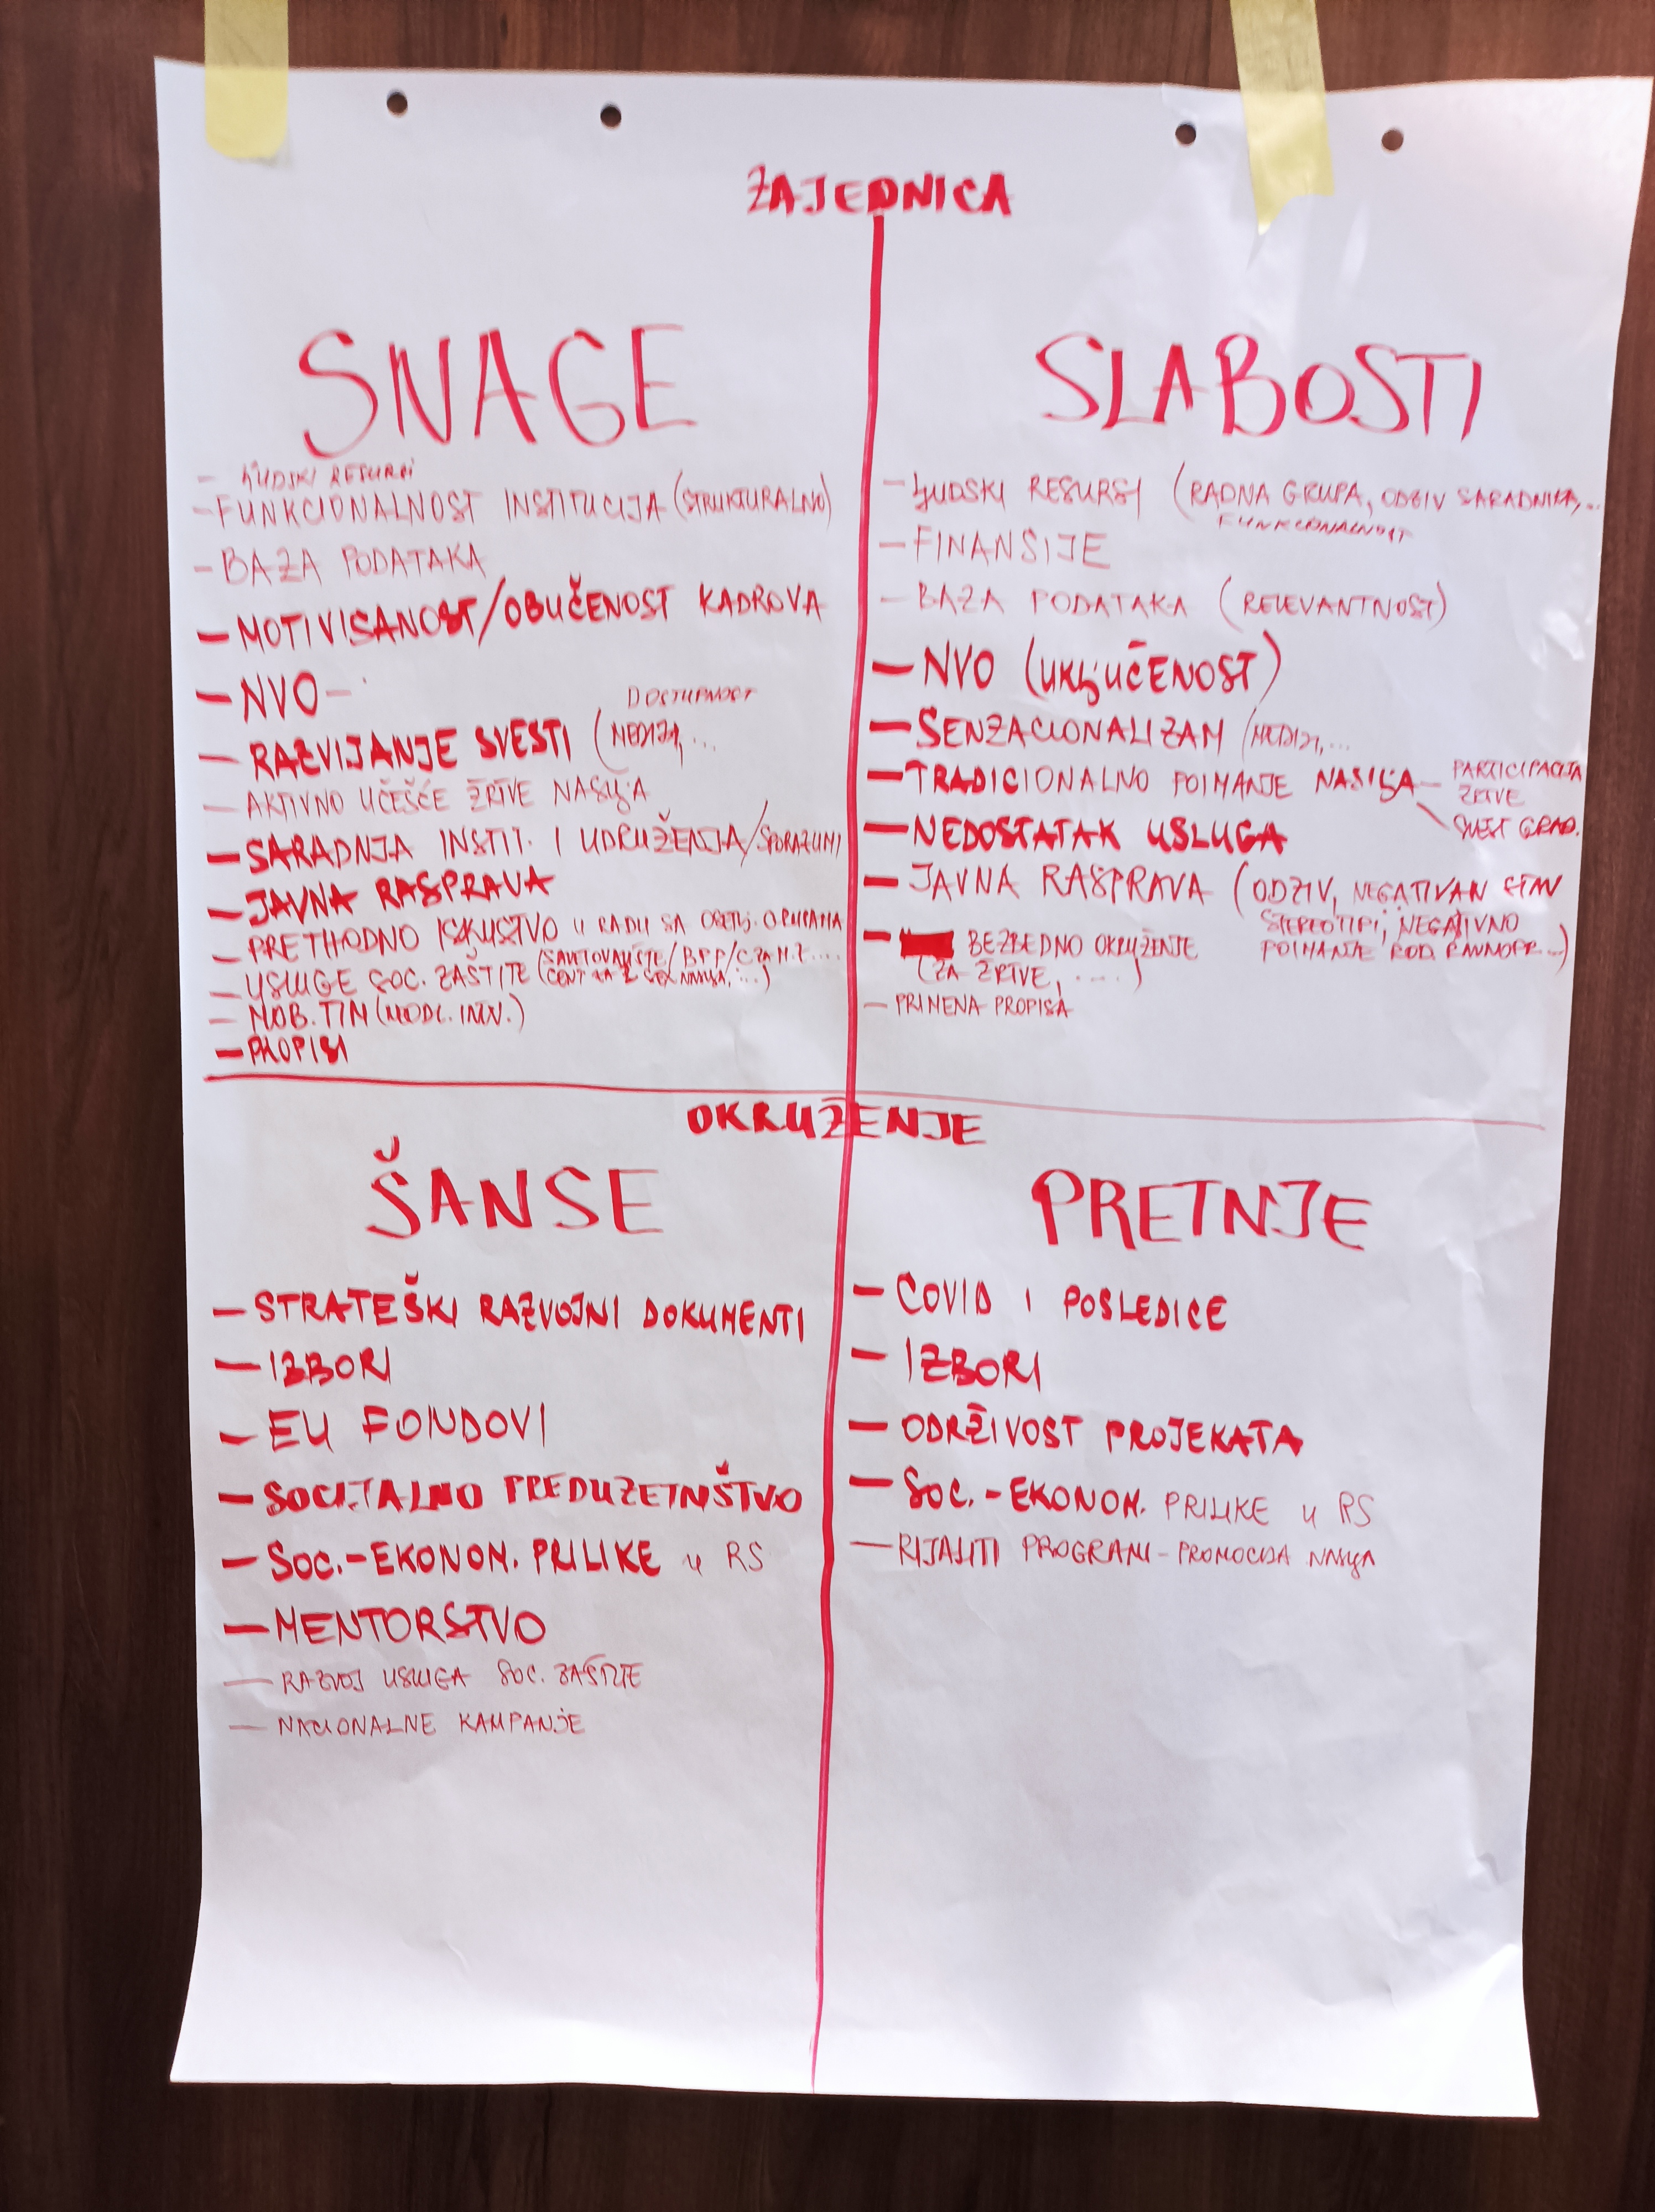 ZAJEDNICA
SNAGE
- LJUDSKI RESURSI
- FUNKCIONALNOST INSTITUCIJA (STRUKTURALNO)
- BAZA PODATAKA
- MOTIVISANOST/OBUČENOST KADROVA
- NVO -
DOSTUPNOST
- RAZVIJANJE SVESTI (MEDIJA, ...
- AKTIVNO UČEŠĆE ŽRTVE NASILJA
- SARADNJA INSTIT. I UDRUŽENJA/SPORAZUMI
- JAVNA RASPRAVA
- PRETHODNO ISKUSTVO U RADU SA OSETLJ. GRUPAMA
- USLUGE SOC. ZAŠTITE (SAVETOVALIŠTE/BPP/
- MOB. TIM
- PROPISI
SLABOSTI
- LJUDSKI RESURSI (RADNA GRUPA, ODZIV SARADNIKA, ...
FUNKCIONALNOST
- FINANSIJE
- BAZA PODATAKA (RELEVANTNOST)
- NVO (UKLJUČENOST)
- SENZACIONALIZAM (MEDIJI, ...
- TRADICIONALNO POIMANJE NASILJA - PARTICIPACIJA
ŽRTVE
SVEST GRAĐ.
- NEDOSTATAK USLUGA
- JAVNA RASPRAVA (ODZIV, NEGATIVAN STAV
STEREOTIPI, NEGATIVNO
POIMANJE ROD. RAVNOPR...)
- BEZBEDNO OKRUŽENJE
(ZA ŽRTVE, ....)
- PRIMENA PROPISA
OKRUŽENJE
ŠANSE
- STRATEŠKI RAZVOJNI DOKUMENTI
- IZBORI
- EU FONDOVI
- SOCIJALNO PREDUZETNIŠTVO
- SOC.-EKONOM. PRILIKE U RS
- MENTORSTVO
- RAZVOJ USLUGA SOC. ZAŠTITE
- NACIONALNE KAMPANJE
PRETNJE
- COVID I POSLEDICE
- IZBORI
- ODRŽIVOST PROJEKATA
- SOC.-EKONOM. PRILIKE U RS
- RIJALITI PROGRAMI - PROMOCIJA NASILJA